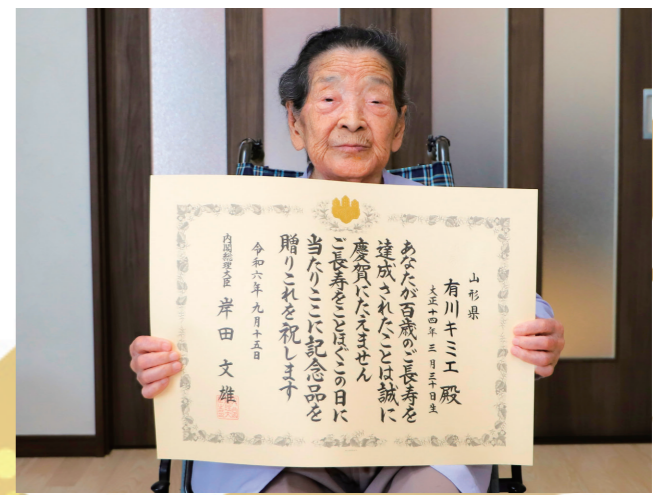 山形県
有川キミエ 殿
大正十四年 三月三十日生
あなたが百歳のご長寿を
達成されたことは誠に
慶賀にたえません
ご長寿をことほぐこの日に
当たりここに記念品を
贈りこれを祝します
令和六年 九月十五日
内閣総理大臣 岸田 文雄